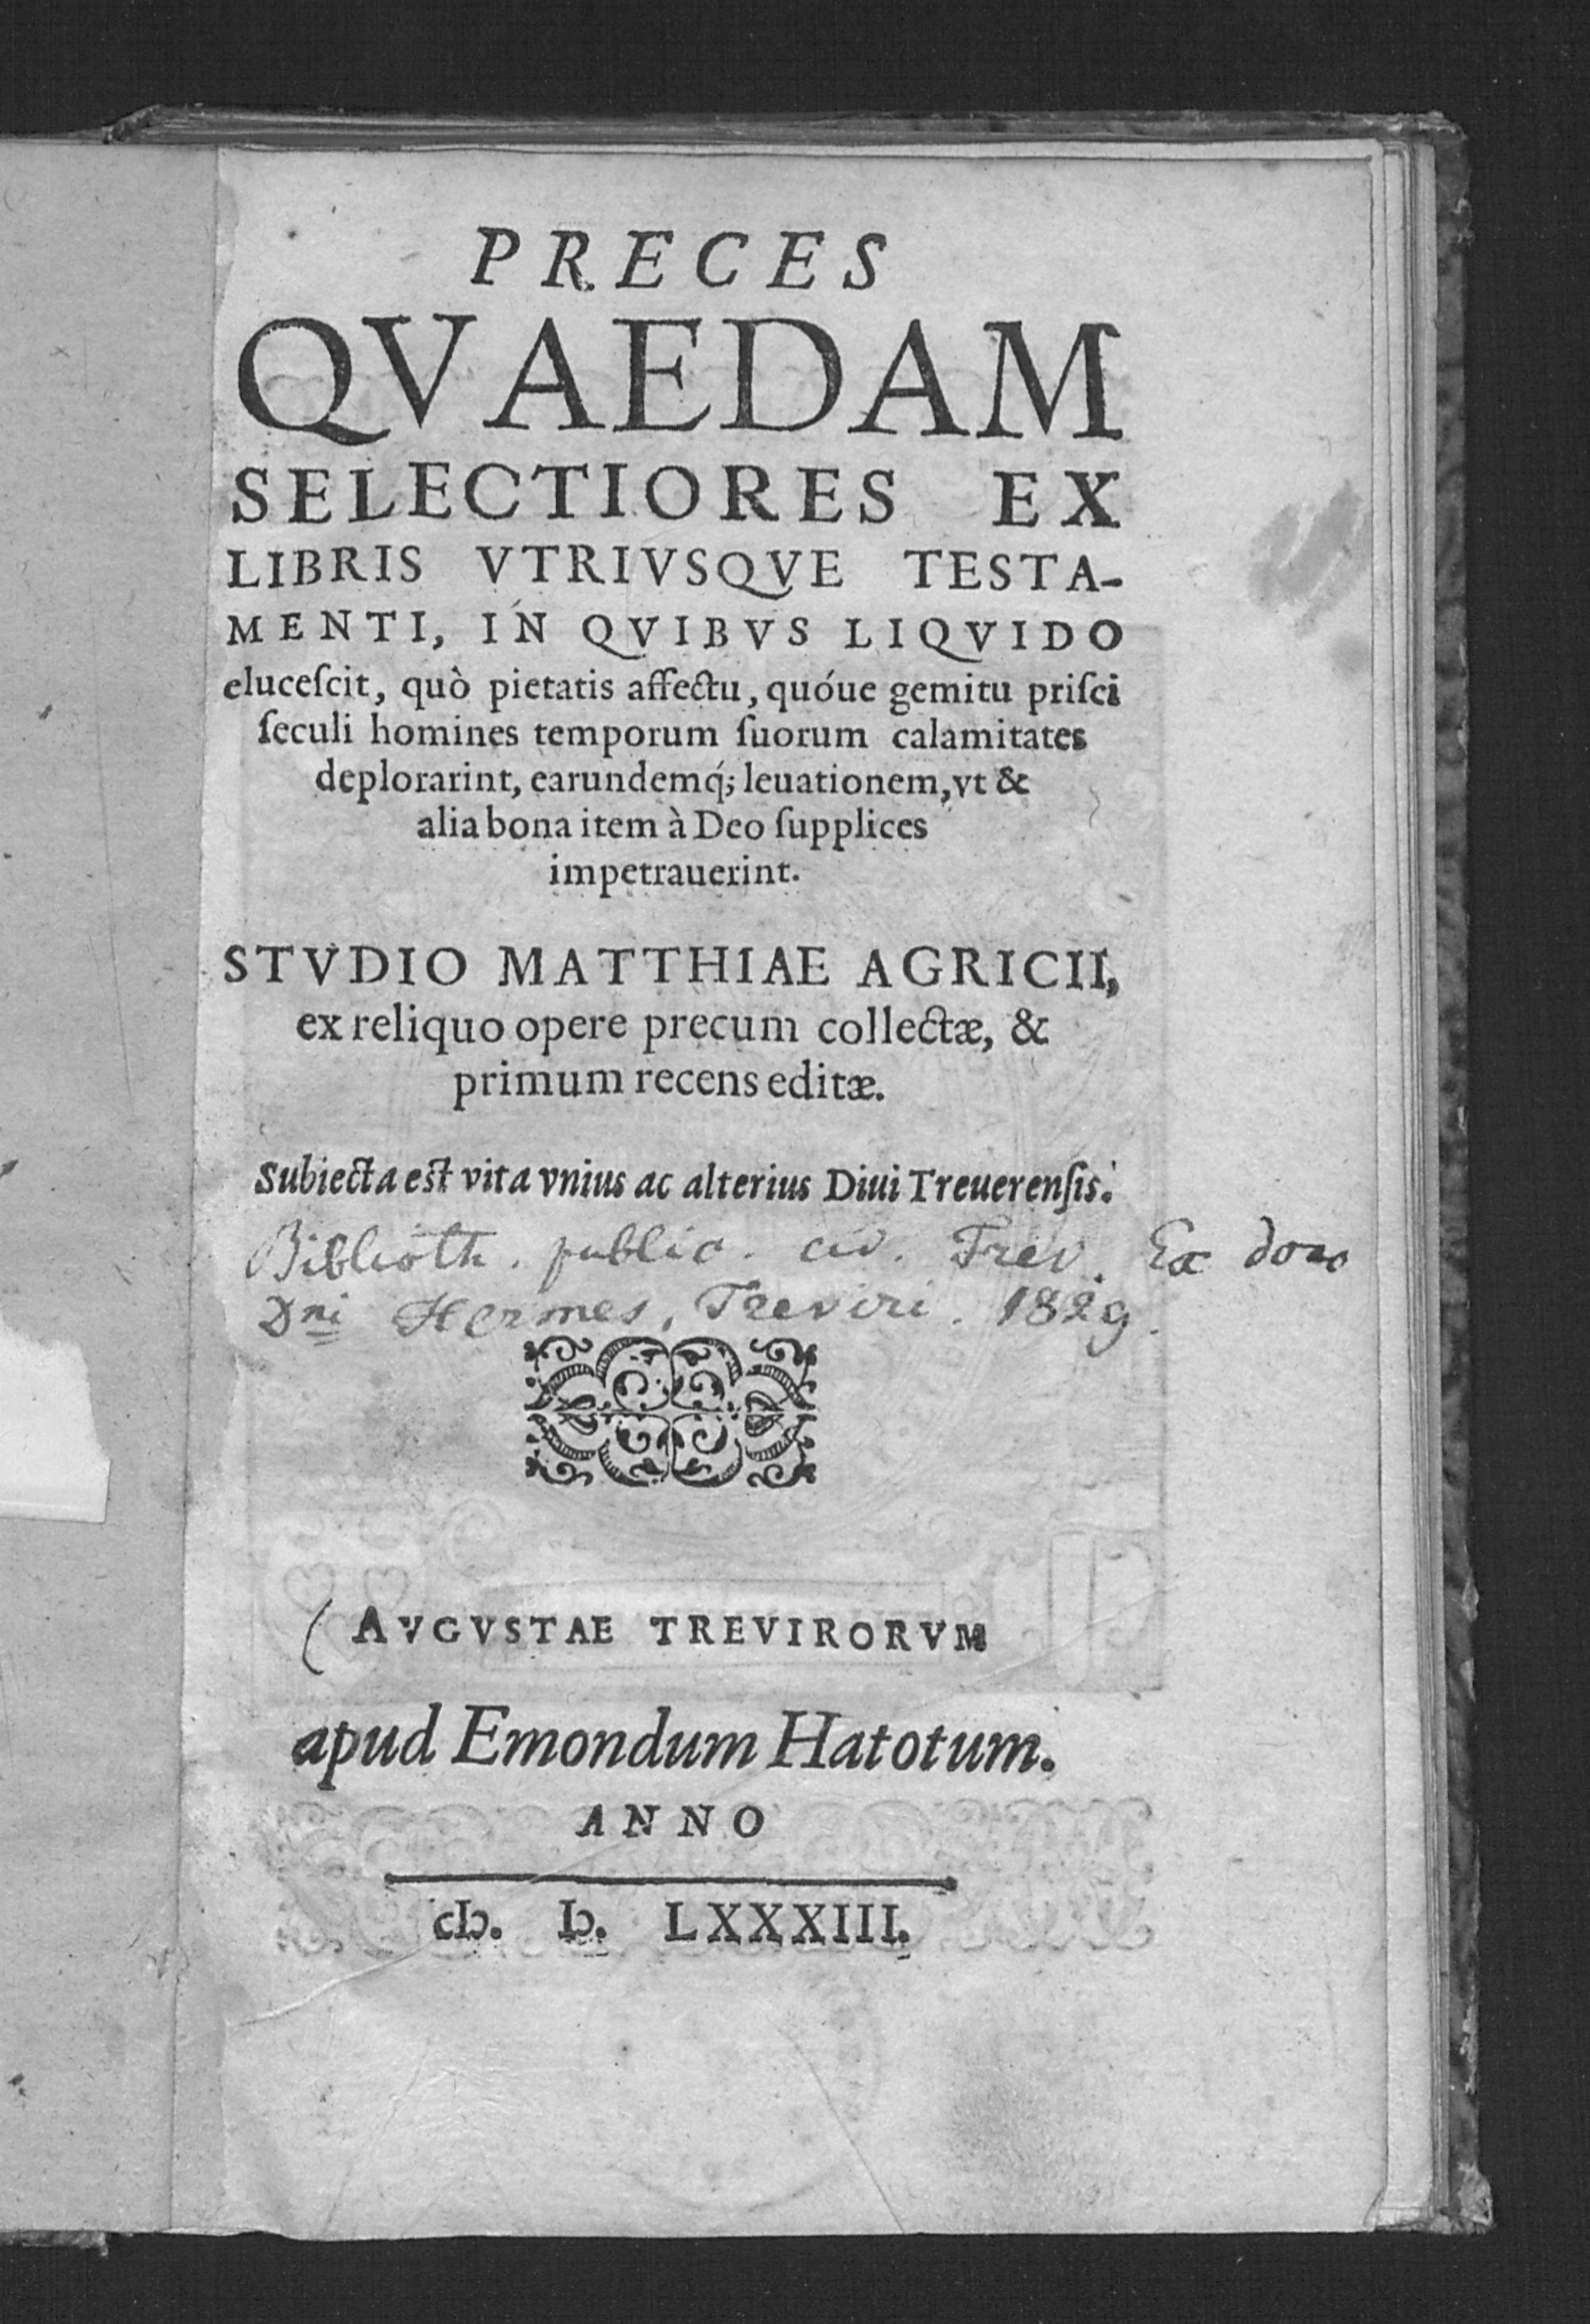 PRECES
QVAEDAM
SELECTIORES EX
LIBRIS VTRIVSQVE TESTA-
MENTI, IN QVIBVS LIQVIDO
eluceſcit, quò pietatis affectu, quóue gemitu priſci
ſeculi homines temporum ſuorum calamitates
deplorarint, earundemq́; leuationem, vt &
alia bona item à Deo ſupplices
impetrauerint.
STVDIO MATTHIAE AGRICII,
ex reliquo opere precum collectæ, &
primum recens editæ.
Subiecta est vita vnius ac alterius Diui Treuerenſis.
Biblioth. public. civ. Trev. Ex dono
Dni Hermes, Treviri. 1829.
AVGVSTAE TREVIRORVM
apud Emondum Hatotum.
ANNO
cIɔ. Iɔ. LXXXIII.